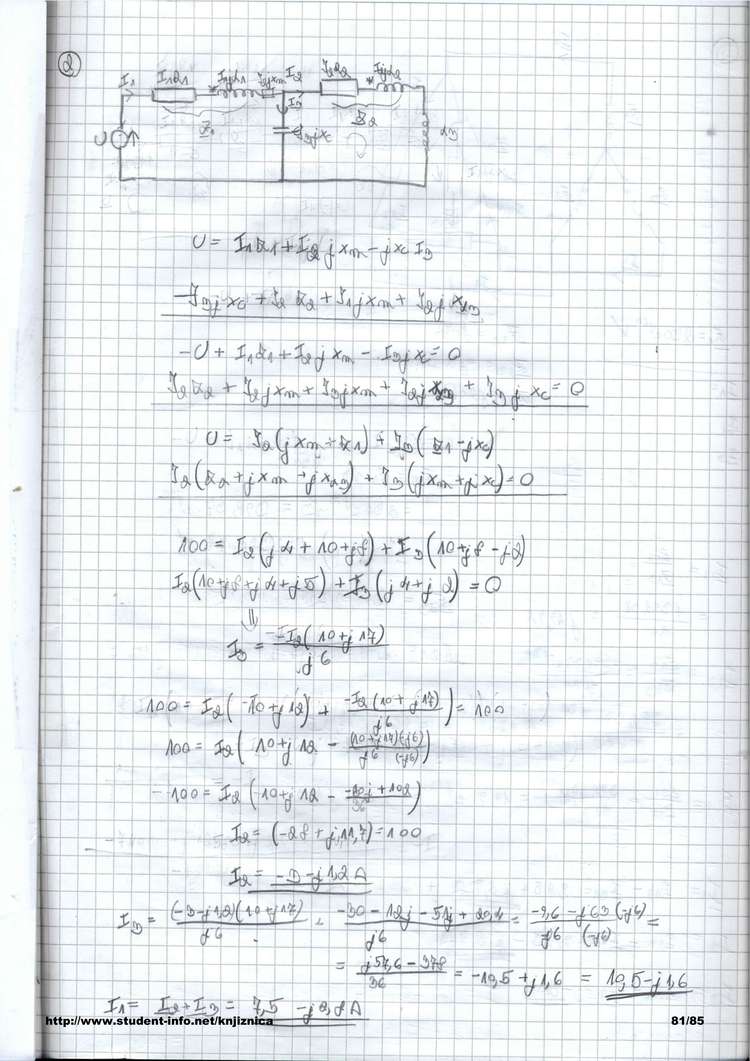 2
I1 I1Z1 Ijx1 I2jxm I2 I2Z2 Ijx2
I3
Z1 I3jxc Z2 x23
U
U = I1Z1 + I2jxm - jxc I3
-I3jxc + I2Z2 + I1jxm + I2jx23
-U + I1Z1 + I2jxm - I3jxc = 0
I2Z2 + I2jxm + I3jxm + I2jx23 + I3jxc = 0
U = I2(jxm + Z1) + I3(Z1 - jxc)
I2(Z2 + jxm + jx23) + I3(jxm + jxc) = 0
100 = I2(j4 + 10 + j8) + I3(10 + j8 - j2)
I2(10 + j8 + j4 + j5) + I3(j4 + j2) = 0
⇓
I3 = -I2(10 + j17) / j6
100 = I2(10 + j12) + (-I2(10 + j17) / j6) = 100
100 = I2(10 + j12 - (10 + j17)(-j6) / j6 (-j6))
100 = I2(10 + j12 - (-60j + 102) / 36)
I2 = (-28 + j11,7) = 100
I2 = -3 - j1,2 A
I3 = (-3 - j1,2)(10 + j17) / j6 = (-30 - 12j - 51j + 20,4) / j6 = (-9,6 - j63)(-j6) / j6 (-j6) =
= (j57,6 - 378) / 36 = -10,5 + j1,6 = 10,5 - j1,6
I1 = I2 + I3 = 7,5 - j2,8 A
http://www.student-info.net/knjiznica 81/85